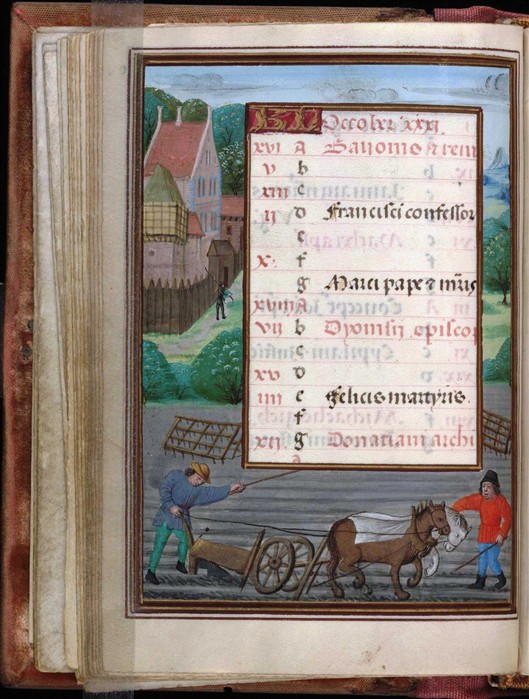 KL October xxxi
xvi A Bauonis & remi
v b
xiii c
ii d Francisci confessor
e
x f
g Marci pape & mris
xviii A
vii b Dyonisii episco
c
xv d
iiii e Felicis martyris.
f
xii g Donatiani archi
a